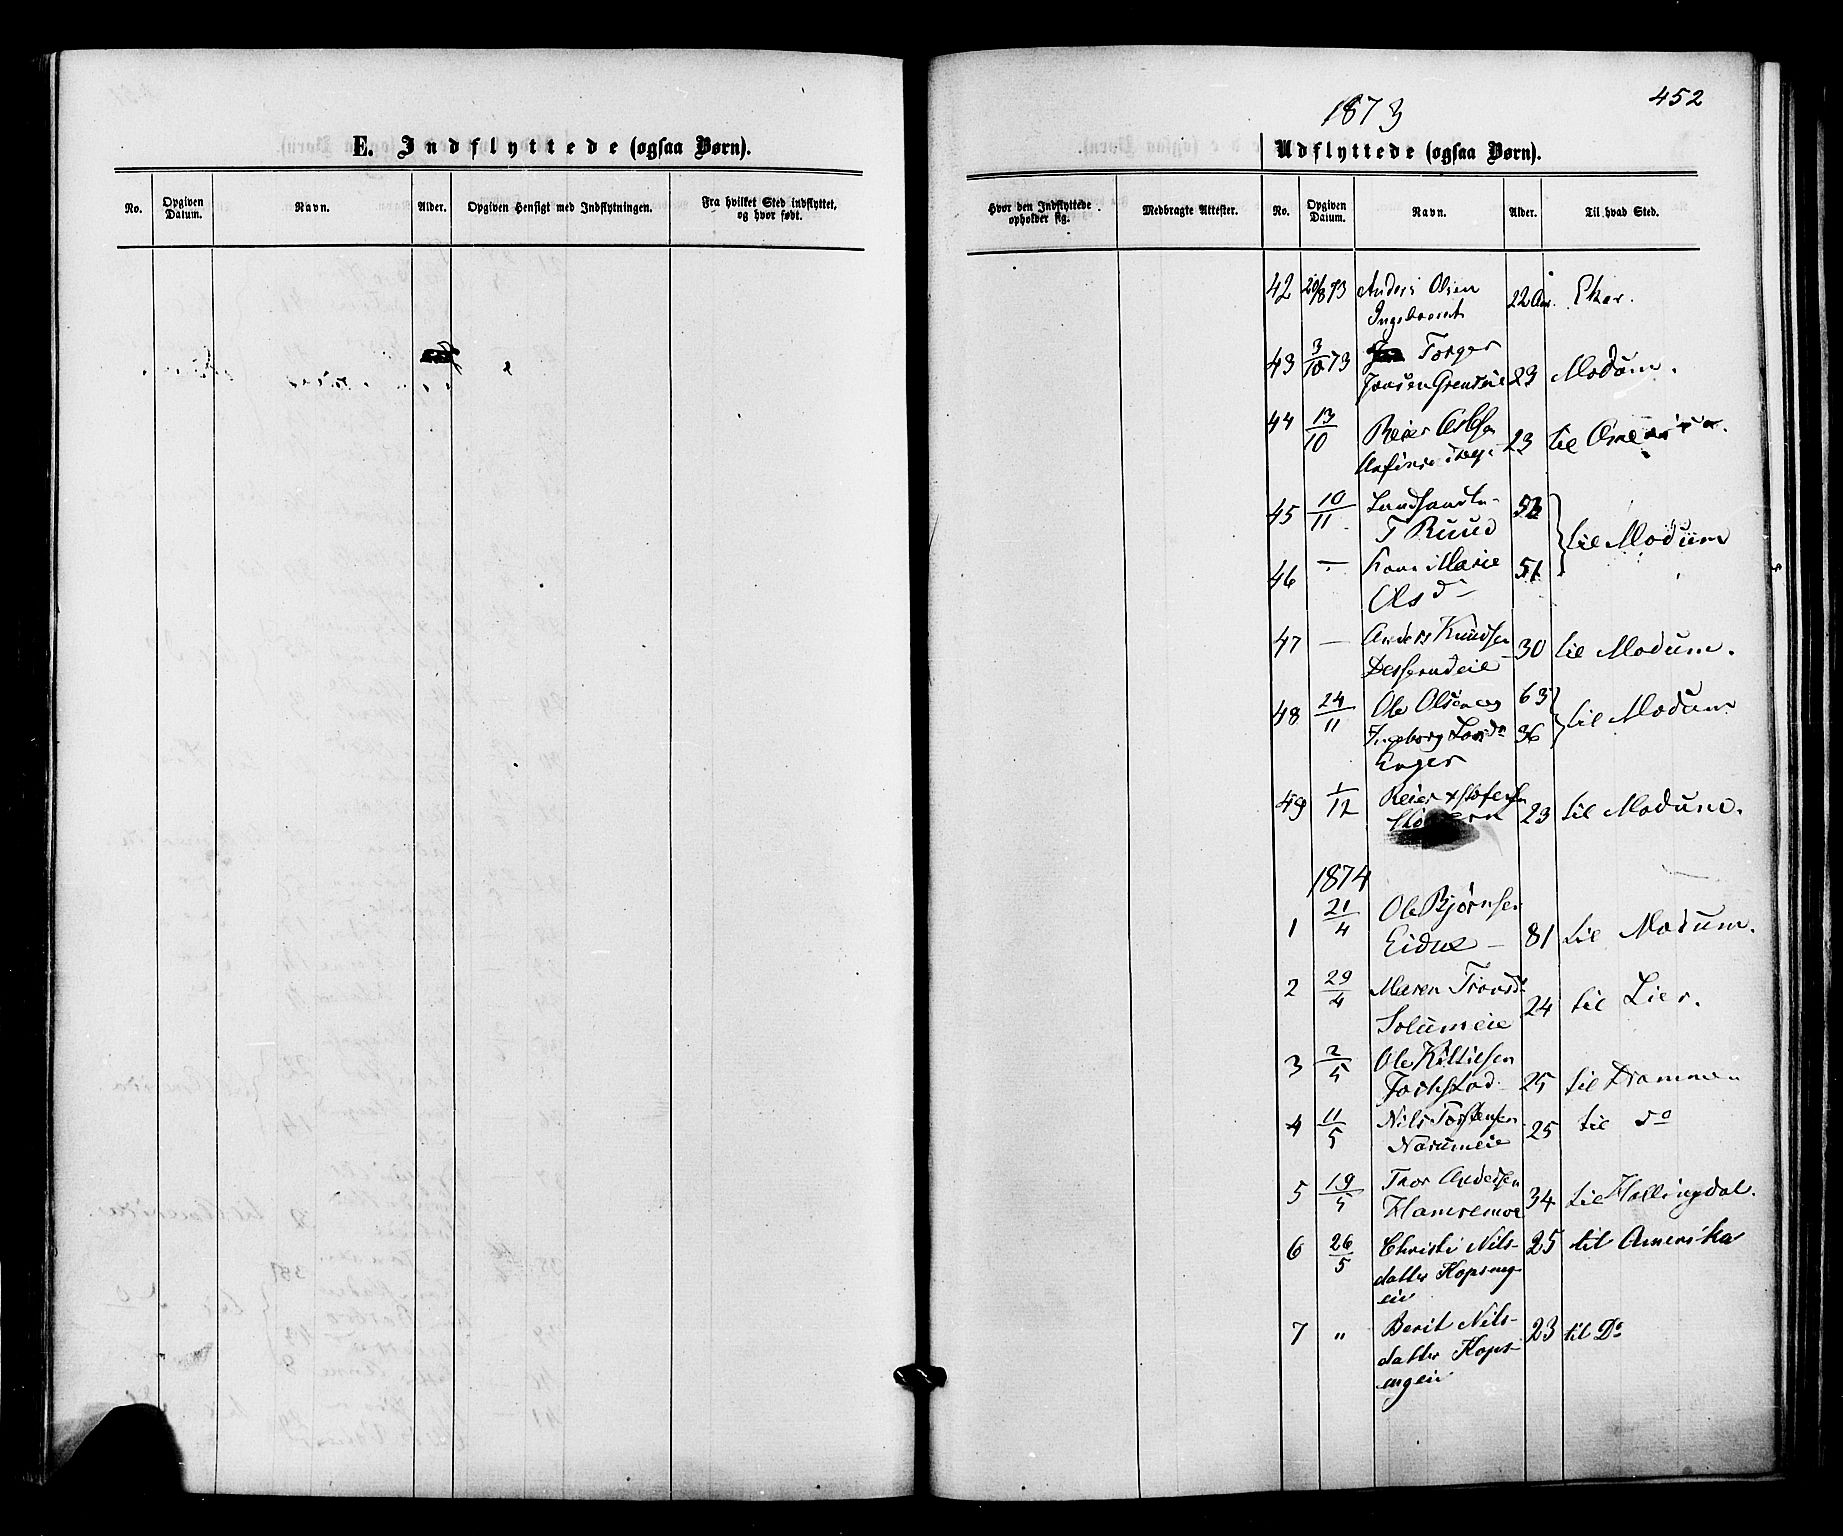 452
1873
E. Indflyttede (ogsaa Børn).
Udflyttede (ogsaa Børn).
No. Opgiven Datum. Navn. Alder. Opgiven Hensigt med Indflytningen. Fra hvilket Sted indflyttet, og hvor født.
Hvor den Indflyttede opholder sig. Medbragte Attester. No. Opgiven Datum. Navn. Alder. Til hvad Sted.
42 20/8 73 Anders Olsen 22 Aar. Eker.
43 3/10 73 Torger
Jonsen 23 Modum.
44 13/10 Reier 23 til
45 10/11 til Modum
T Ruud
46 — Marie 51
Olsd
47 — Anders Knudsen 30 til Modum.
48 24/11 Ole Olsen og 63 til Modum
Ingeborg 36
Enger
49 1/12 Reier 23 til Modum.
1874
1 21/4 Ole Bjørnsen
Eidal — 81 til Modum.
2 29/4 Maren Trondsd
Solumeie 24 til Lier.
3 2/5 Ole Kittilsen
25 til Drammen
4 11/5 Nils Torstensen 25 til do
Narumeie
5 19/5 Tror Andersen
Hamremoe 34 til Hallingdal.
6 26/5 Christi Nils- 25 til Amerika
datter Kopseng-
eie
7 " Berit Nils- 23 til Do
datter Kops-
engeie